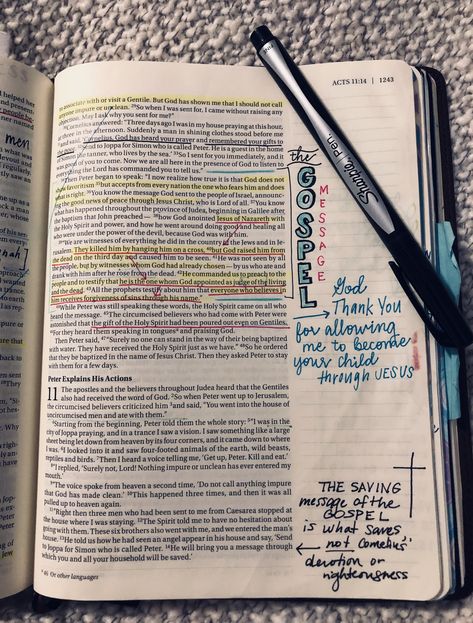 ACTS 11:14 | 1243
to associate with or visit a Gentile. But God has shown me that I should not call
anyone impure or unclean. 29So when I was sent for, I came without raising any
objection. May I ask why you sent for me?”
30Cornelius answered: “Three days ago I was in my house praying at this hour,
at three in the afternoon. Suddenly a man in shining clothes stood before me
and said, ‘Cornelius, God has heard your prayer and remembered your gifts to
the poor. Send to Joppa for Simon who is called Peter. He is a guest in the home
of Simon the tanner, who lives by the sea.’ 33So I sent for you immediately, and it
was good of you to come. Now we are all here in the presence of God to listen to
everything the Lord has commanded you to tell us.”
34Then Peter began to speak: “I now realize how true it is that God does not
show favoritism 35but accepts from every nation the one who fears him and does
what is right. 36You know the message God sent to the people of Israel, announcing
the good news of peace through Jesus Christ, who is Lord of all. 37You know
what has happened throughout the province of Judea, beginning in Galilee after
the baptism that John preached — 38how God anointed Jesus of Nazareth with
the Holy Spirit and power, and how he went around doing good and healing all
who were under the power of the devil, because God was with him.
39“We are witnesses of everything he did in the country of the Jews and in Jerusalem.
They killed him by hanging him on a cross, 40but God raised him from
the dead on the third day and caused him to be seen. 41He was not seen by all
the people, but by witnesses whom God had already chosen — by us who ate and
drank with him after he rose from the dead. 42He commanded us to preach to the
people and to testify that he is the one whom God appointed as judge of the living
and the dead. 43All the prophets testify about him that everyone who believes in
him receives forgiveness of sins through his name.”
44While Peter was still speaking these words, the Holy Spirit came on all who
heard the message. 45The circumcised believers who had come with Peter were
astonished that the gift of the Holy Spirit had been poured out even on Gentiles.
46For they heard them speaking in tongues and praising God.
Then Peter said, 47“Surely no one can stand in the way of their being baptized
with water. They have received the Holy Spirit just as we have.” 48So he ordered
that they be baptized in the name of Jesus Christ. Then they asked Peter to stay
with them for a few days.
Peter Explains His Actions
11 The apostles and the believers throughout Judea heard that the Gentiles
also had received the word of God. 2So when Peter went up to Jerusalem,
the circumcised believers criticized him 3and said, “You went into the house of
uncircumcised men and ate with them.”
4Starting from the beginning, Peter told them the whole story: 5“I was in the
city of Joppa praying, and in a trance I saw a vision. I saw something like a large
sheet being let down from heaven by its four corners, and it came down to where
I was. 6I looked into it and saw four-footed animals of the earth, wild beasts,
reptiles and birds. 7Then I heard a voice telling me, ‘Get up, Peter. Kill and eat.’
8“I replied, ‘Surely not, Lord! Nothing impure or unclean has ever entered my
mouth.’
9“The voice spoke from heaven a second time, ‘Do not call anything impure
that God has made clean.’ 10This happened three times, and then it was all
pulled up to heaven again.
11“Right then three men who had been sent to me from Caesarea stopped at
the house where I was staying. 12The Spirit told me to have no hesitation about
going with them. These six brothers also went with me, and we entered the man’s
house. 13He told us how he had seen an angel appear in his house and say, ‘Send
to Joppa for Simon who is called Peter. 14He will bring you a message through
which you and all your household will be saved.’
46 Or other languages
the
GOSPEL
MESSAGE
Sharpie Pen.
God
Thank You
for allowing
me to become
your child
through JESUS
THE SAVING
message of the
GOSPEL
is what saves
not Cornelius'
devotion or
righteousness
men